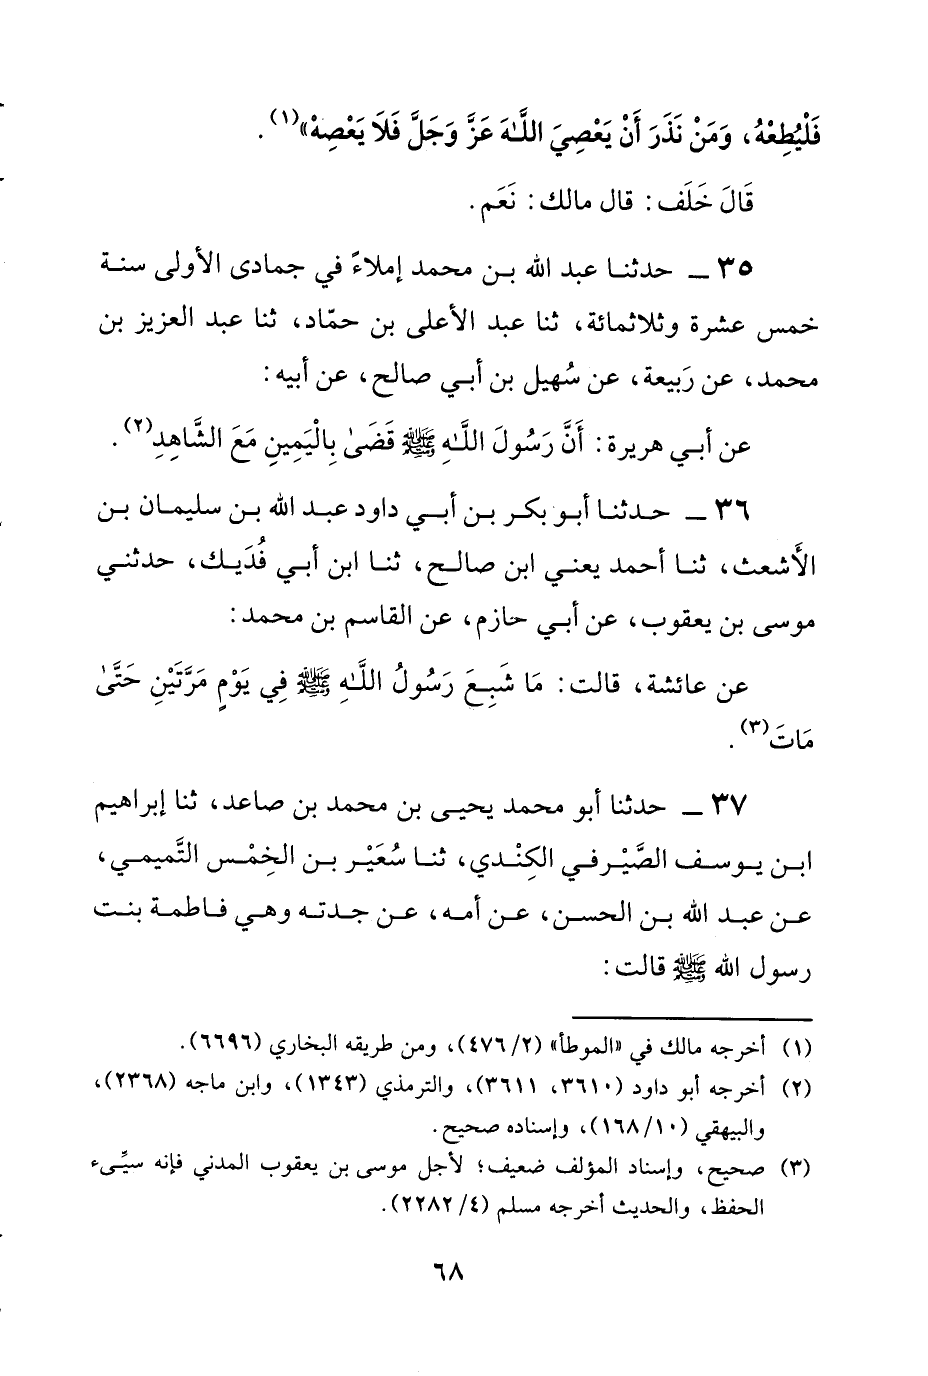 فَلْيُطِعْهُ، وَمَنْ نَذَرَ أَنْ يَعْصِيَ اللَّهَ عَزَّ وَجَلَّ فَلَا يَعْصِهْ»(١).
قَالَ خَلَف: قال مالك: نَعَم.
٣٥ ـ حدثنا عبد الله بن محمد إملاءً في جمادى الأولى سنة
خمس عشرة وثلاثمائة، ثنا عبد الأعلى بن حمّاد، ثنا عبد العزيز بن
محمد، عن رَبيعة، عن سُهيل بن أبي صالح، عن أبيه:
عن أبي هريرة: أَنَّ رَسُولَ اللَّهِ ﷺ قَضَىٰ بِالْيَمِينِ مَعَ الشَّاهِدِ(٢).
٣٦ ـ حدثنا أبو بكر بن أبي داود عبد الله بن سليمان بن
الأَشعث، ثنا أحمد يعني ابن صالح، ثنا ابن أبي فُدَيك، حدثني
موسى بن يعقوب، عن أبي حازم، عن القاسم بن محمد:
عن عائشة، قالت: مَا شَبِعَ رَسُولُ اللَّهِ ﷺ فِي يَوْمٍ مَرَّتَيْنِ حَتَّىٰ
مَاتَ(٣).
٣٧ ـ حدثنا أبو محمد يحيى بن محمد بن صاعد، ثنا إبراهيم
ابن يوسف الصَّيْرفي الكِنْدي، ثنا سُعَيْر بن الخِمْس التَّميمي،
عن عبد الله بن الحسن، عن أمه، عن جدته وهي فاطمة بنت
رسول الله ﷺ قالت:
(١) أخرجه مالك في «الموطأ» (٤٧٦/٢)، ومن طريقه البخاري (٦٦٩٦).
(٢) أخرجه أبو داود (٣٦١٠، ٣٦١١)، والترمذي (١٣٤٣)، وابن ماجه (٢٣٦٨)،
والبيهقي (١٦٨/١٠)، وإسناده صحيح.
(٣) صحيح، وإسناد المؤلف ضعيف؛ لأجل موسى بن يعقوب المدني فإنه سيِّىء
الحفظ، والحديث أخرجه مسلم (٢٢٨٢/٤).
٦٨